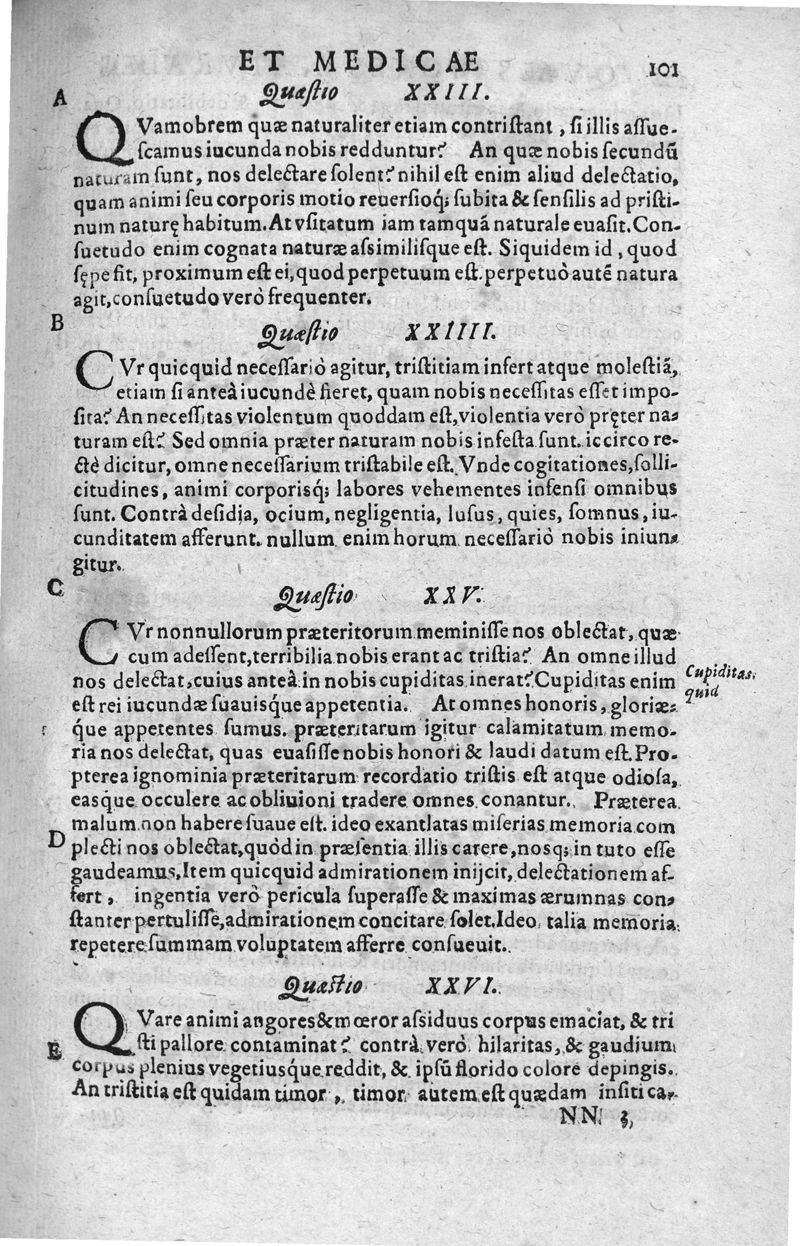 ET MEDICAE 101
A
Quæſtio XXIII.
QVamobrem quæ naturaliter etiam contriſtant, ſi illis aſſue-
ſcamus iucunda nobis redduntur? An quæ nobis ſecundū
naturam ſunt, nos delectare ſolent? nihil eſt enim aliud delectatio,
quam animi ſeu corporis motio reuerſioq; ſubita & ſenſilis ad priſti-
num naturę habitum. At vſitatum iam tamquā naturale euaſit. Con-
ſuetudo enim cognata naturæ aſsimiliſque eſt. Siquidem id, quod
ſępe fit, proximum eſt ei, quod perpetuum eſt. perpetuò autē natura
agit, conſuetudo verò frequenter.
B
Quæſtio XXIIII.
CVr quicquid neceſſariò agitur, triſtitiam infert atque moleſtiā,
etiam ſi anteà iucundè fieret, quam nobis neceſſitas eſſet impo-
ſita? An neceſſitas violentum quoddam eſt, violentia verò pręter na-
turam eſt? Sed omnia præter naturam nobis infeſta ſunt. iccirco re-
ctè dicitur, omne neceſſarium triſtabile eſt. Vnde cogitationes, ſolli-
citudines, animi corporisq; labores vehementes infenſi omnibus
ſunt. Contrà deſidia, ocium, negligentia, luſus, quies, ſomnus, iu-
cunditatem afferunt. nullum enim horum neceſſariò nobis iniun-
gitur.
C
Quæſtio XXV.
CVr nonnullorum præteritorum meminiſſe nos oblectat, quæ
cum adeſſent, terribilia nobis erant ac triſtia? An omne illud
nos delectat, cuius anteà in nobis cupiditas inerat? Cupiditas enim
Cupiditas
quid
eſt rei iucundæ ſuauisq́ue appetentia. At omnes honoris, gloriæ-
q́ue appetentes ſumus. præteritarum igitur calamitatum memo-
ria nos delectat, quas euaſiſſe nobis honori & laudi datum eſt. Pro-
pterea ignominia præteritarum recordatio triſtis eſt atque odioſa,
easq́ue occulere ac obliuioni tradere omnes conantur. Præterea
malum non habere ſuaue eſt. ideo exantlatas miſerias memoria com
D
plecti nos oblectat, quòd in præſentia illis carere, nosq; in tuto eſſe
gaudeamus, Item quicquid admirationem inijcit, delectationem af-
fert, ingentia verò pericula ſuperaſſe & maximas ærumnas con-
ſtanter pertuliſſe, admirationem concitare ſolet. Ideo talia memoria
repetere ſummam voluptatem afferre conſueuit.
Quæſtio XXVI.
QVare animi angores & mœror aſsiduus corpus emaciat, & tri
ſti pallore contaminat? contrà verò hilaritas, & gaudium
E
corpus plenius vegetiusq́ue reddit, & ipſū florido colore depingis.
An triſtitia eſt quidam timor, timor autem eſt quædam inſiti ca-
NN 3